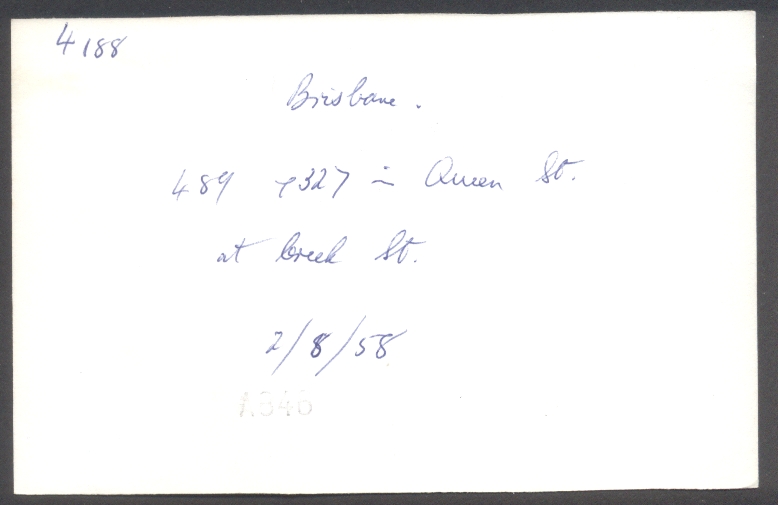 4188
Brisbane.
489 & 327 in Queen St.
at Creek St.
2/8/58